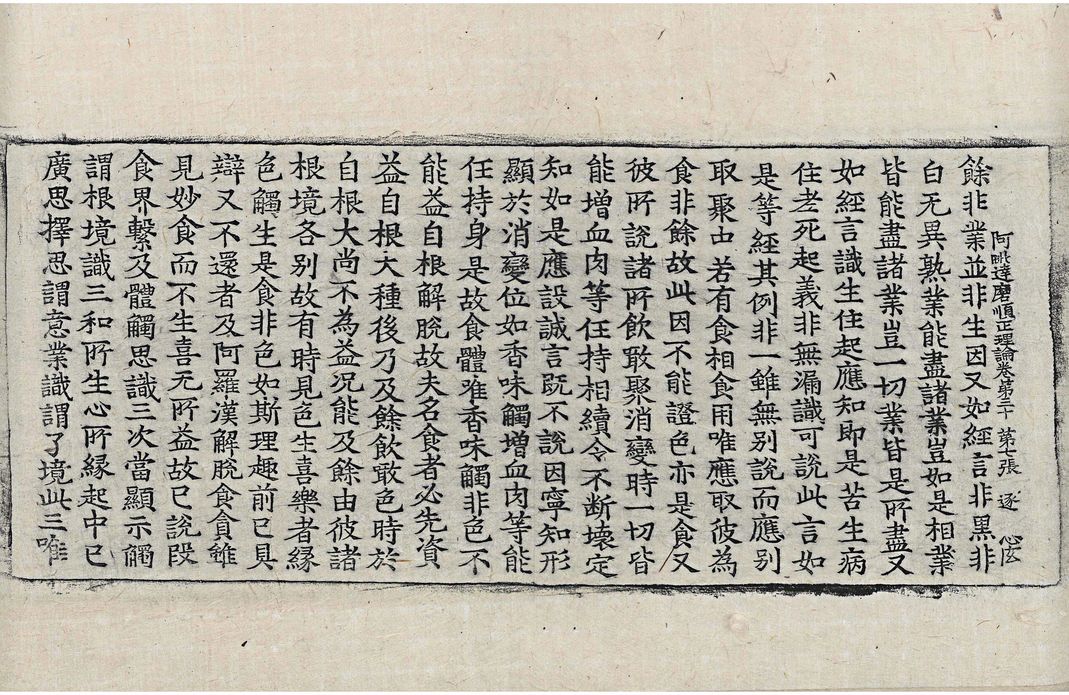 阿毗達磨順正理論卷第三十 第七張 逐
餘非業並非生因又如經言非黑非
白无異熟業能盡諸業豈如是相業
皆能盡諸業豈一切業皆是所盡又
如經言識生住起應知即是苦生病
住老死起義非無漏識可說此言如
是等經其例非一雖無別說而應別
取聚中若有食相食用唯應取彼為
食非餘故此因不能證色亦是食又
彼所說諸所飲噉聚消變時一切皆
能增血肉等任持相續令不斷壞定
知如是應設誠言既不說因寧知形
顯於消變位如香味觸增血肉等能
任持身是故食體唯香味觸非色不
能益自根解脫故夫名食者必先資
益自根大種後乃及餘飲噉色時於
自根大尚不為益況能及餘由彼諸
根境各別故有時見色生喜樂者緣
色觸生是食非色如斯理趣前已具
辯又不還者及阿羅漢解脫食貪雖
見妙食而不生喜无所益故已說段
食界繫及體觸思識三次當顯示觸
謂根境識三和所生心所緣起中已
廣思擇思謂意業識謂了境此三唯